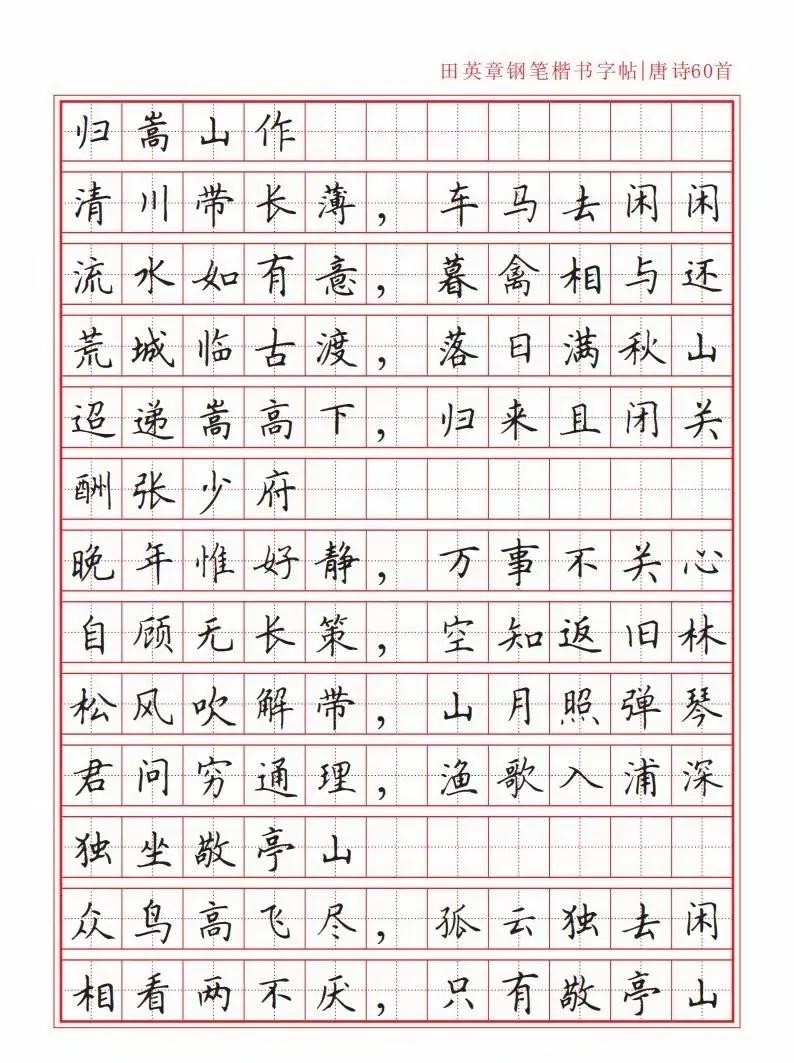 田英章钢笔楷书字帖|唐诗60首
归嵩山作
清川带长薄，车马去闲闲
流水如有意，暮禽相与还
荒城临古渡，落日满秋山
迢递嵩高下，归来且闭关
酬张少府
晚年惟好静，万事不关心
自顾无长策，空知返旧林
松风吹解带，山月照弹琴
君问穷通理，渔歌入浦深
独坐敬亭山
众鸟高飞尽，孤云独去闲
相看两不厌，只有敬亭山